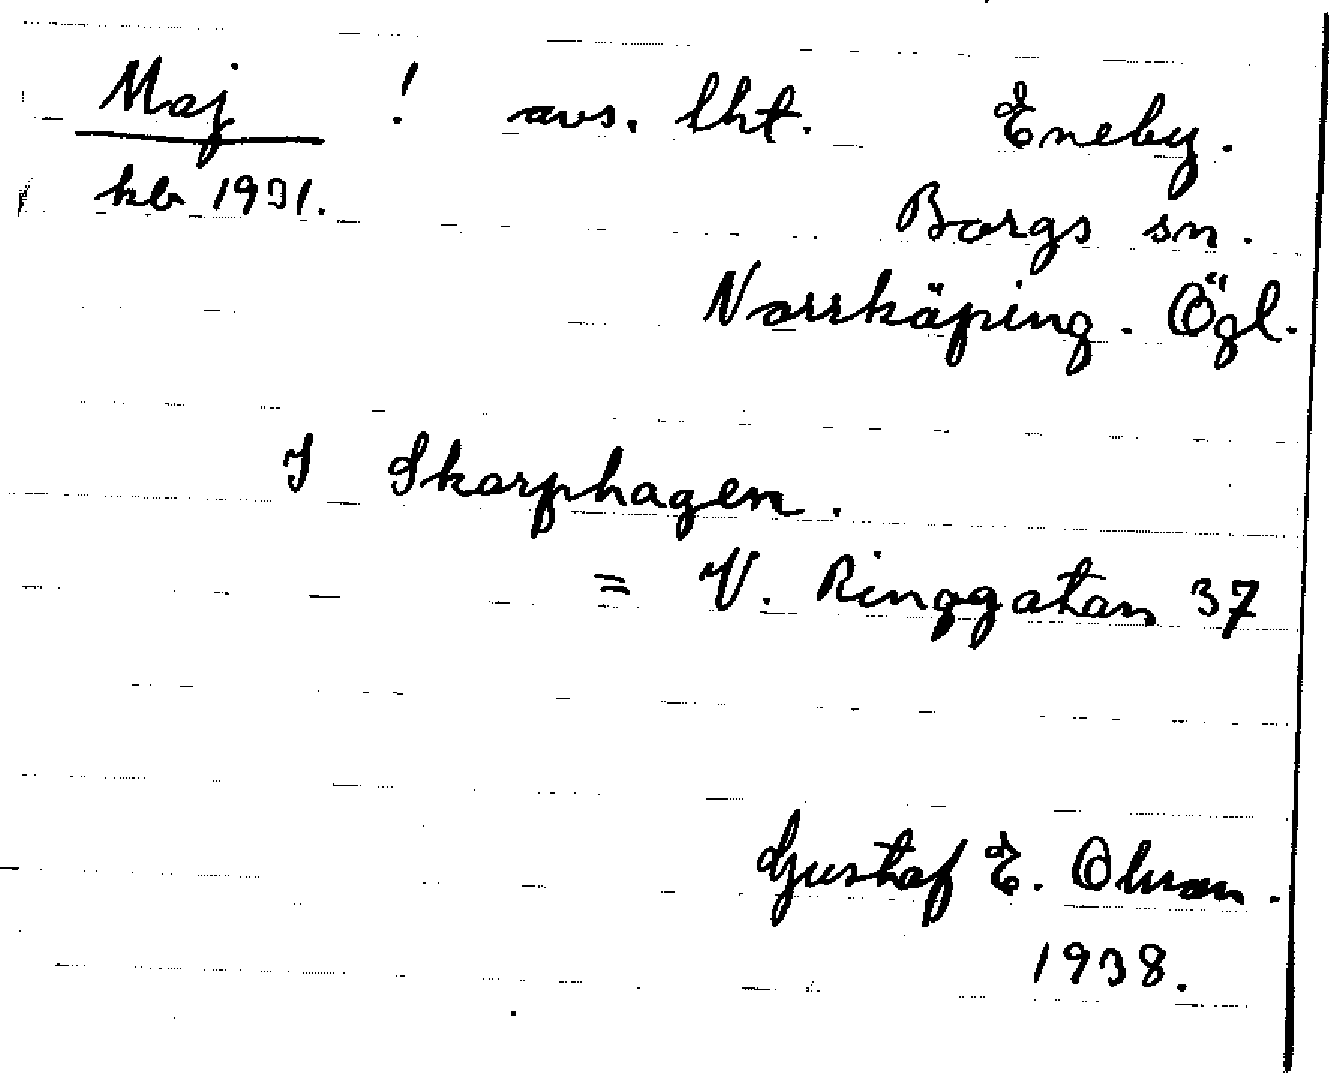 Maj ! avs. lht. Eneby.
kb 1931. Borgs sn.
Norrköping. Ögl.
I Skarphagen.
= V. Ringgatan 37
Gustaf E. Olsson.
1938.